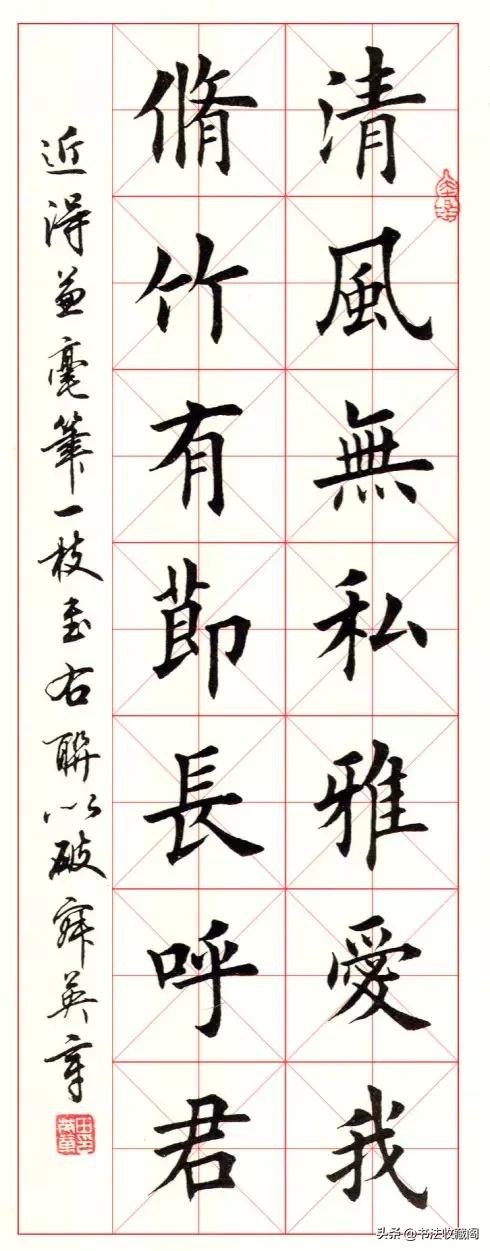 清風無私雅愛我
脩竹有莭長呼君
近得兼毫筆一枝書右聯以破寂英章
田英章印
头条 @书法收藏阁